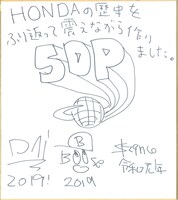 HONDAの歴史を
ふり返って震えながら作り
ました。
SDP
DAi
2019!
B
BOSe
2019
令和元年